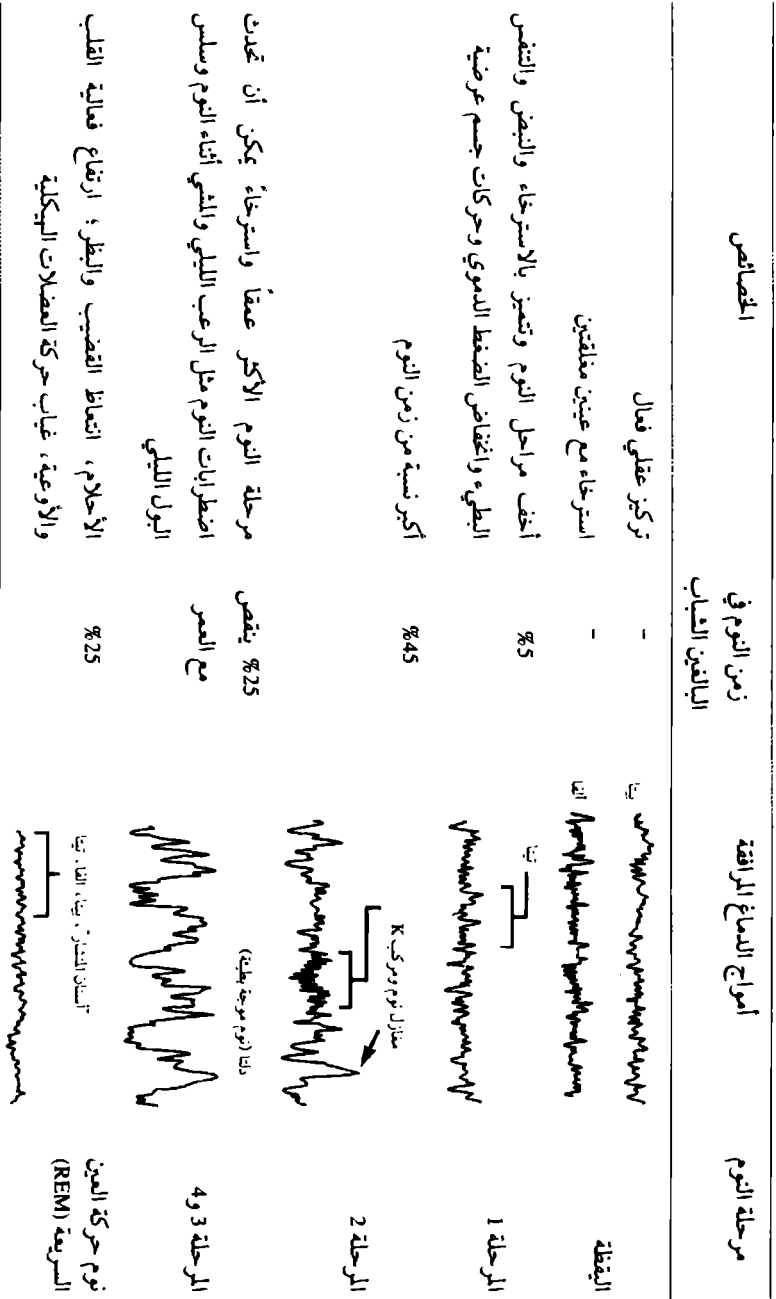 مرحلة النوم
أمواج الدماغ المرافقة
زمن النوم في
البالغين الشباب
الخصائص
اليقظة
بيتا
-
تركيز عقلي فعال
الفا
-
استرخاء مع عينين مغلقتين
المرحلة 1
تيتا
%5
أخف مراحل النوم وتتميز بالاسترخاء والنبض والتنفس
البطيء وانخفاض الضغط الدموي وحركات جسم عرضية
المرحلة 2
مغازل نوم ومركب K
%45
أكبر نسبة من زمن النوم
المرحلة 3 و 4
دلتا (نوم موجة بطيئة)
%25 ينقص
مع العمر
مرحلة النوم الأكثر عمقاً واسترخاءً يمكن أن تحدث
اضطرابات النوم مثل الرعب الليلي والمشي أثناء النوم وسلس
البول الليلي
نوم حركة العين
السريعة (REM)
"أسنان المنشار"، بيتا، الفا، تيتا
%25
الأحلام، انتعاظ القضيب والبظر؛ ارتفاع فعالية القلب
والأوعية، غياب حركة العضلات الهيكلية